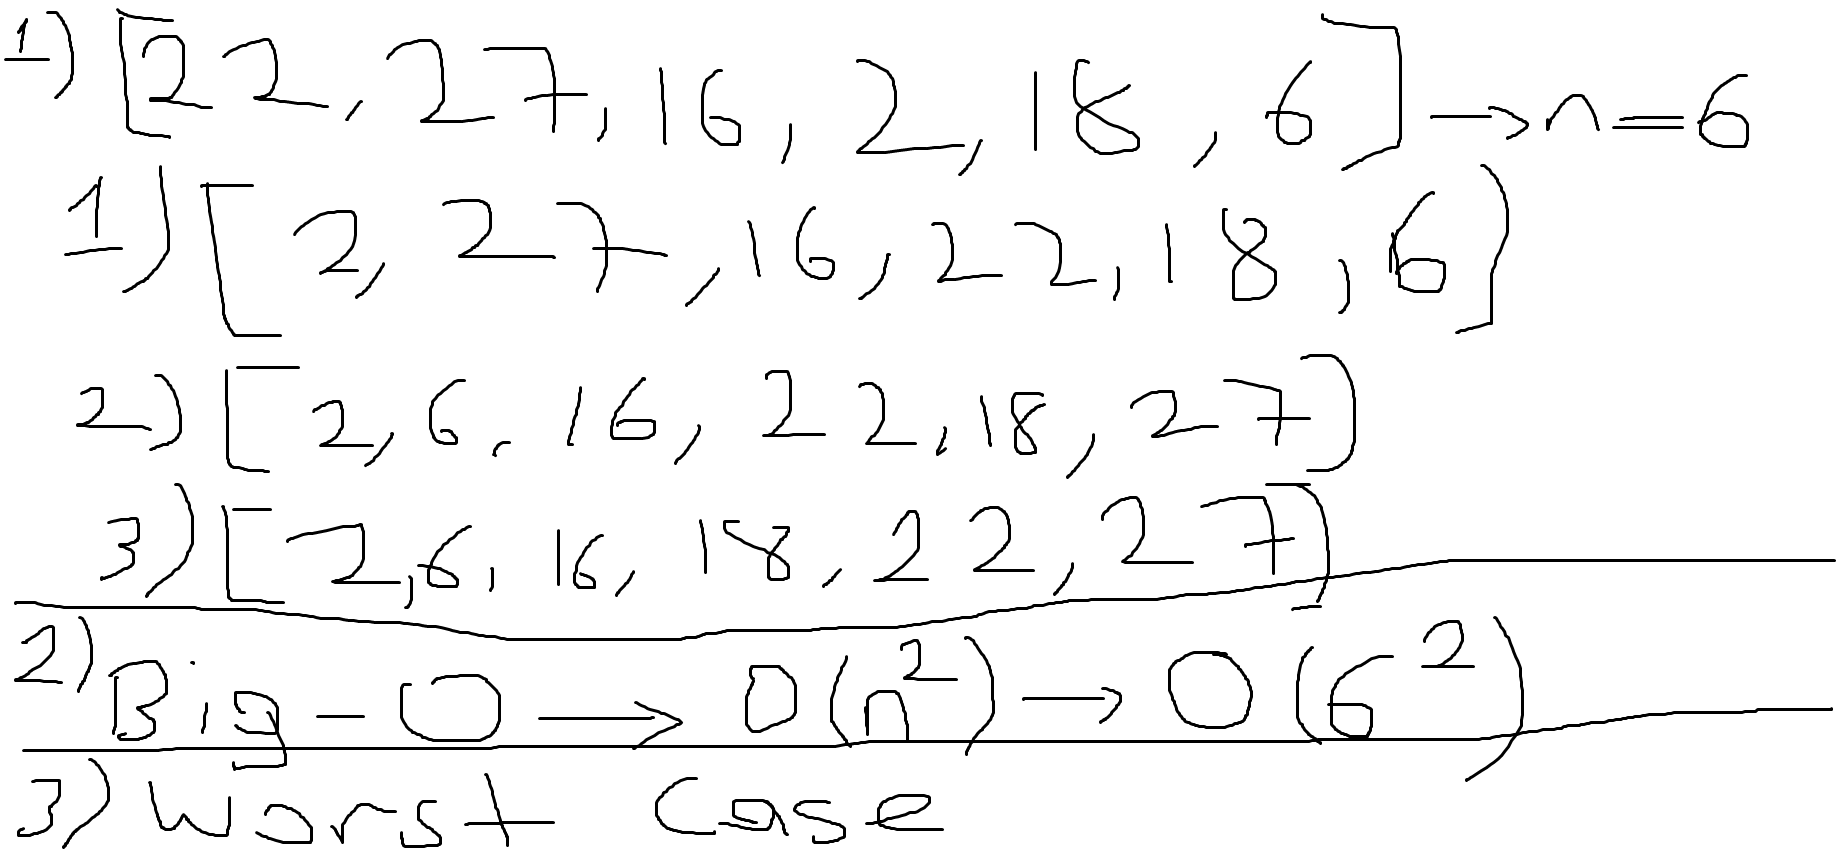 1) [22, 27, 16, 2, 18, 6] → n = 6
1) [2, 27, 16, 22, 18, 6]
2) [2, 6, 16, 22, 18, 27]
3) [2, 6, 16, 18, 22, 27]
2) Big-O → O(n²) → O(6²)
3) Worst Case